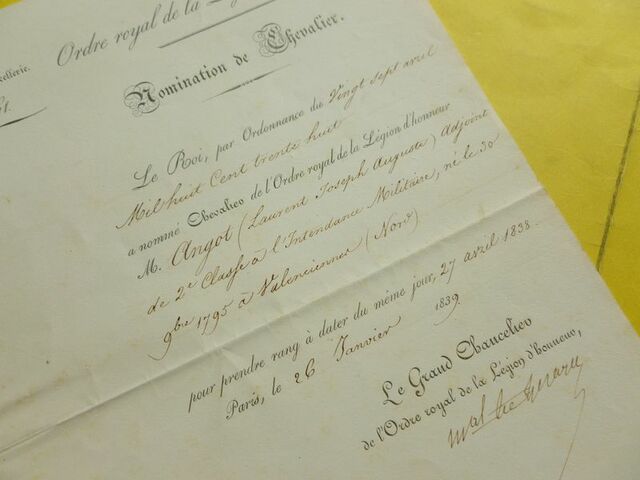 Ordre royal de la
ellerie.
Nomination de Chevalier.
Le Roi, par Ordonnance du Vingt sept avril
Mil huit Cent trente huit
a nommé Chevalier de l'Ordre royal de la Légion d'honneur
M. Angot (Laurent Joseph Auguste) Adjoint
de 2e Classe à l'Intendance Militaire, né le 30
9bre 1795 à Valenciennes (Nord)
pour prendre rang à dater du même jour, 27 avril 1838.
Paris, le 26 Janvier 1839.
Le Grand Chancelier
de l'Ordre royal de la Légion d'honneur,